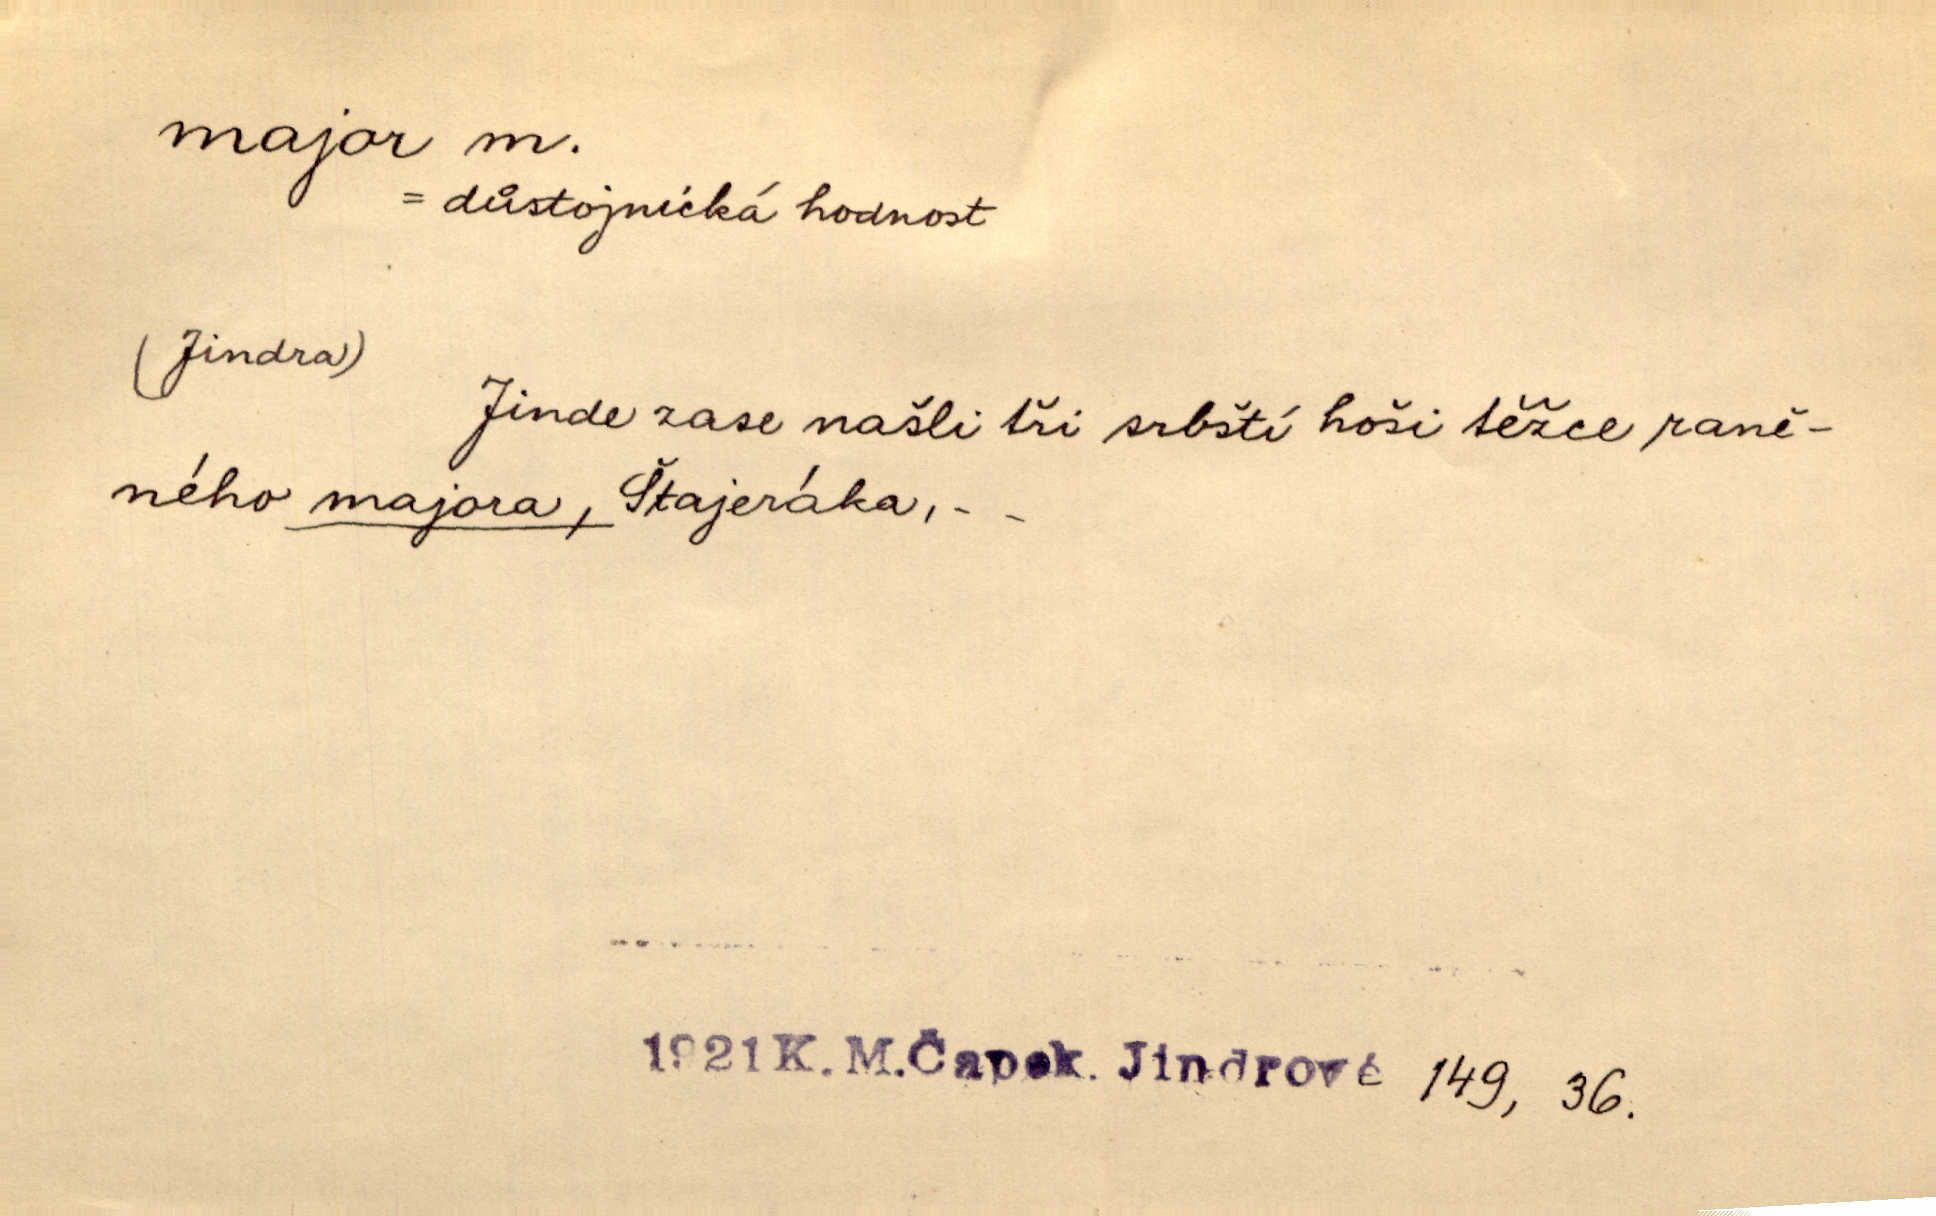 major m.
= důstojnická hodnost
(Jindra)
Jinde zase našli tři srbští hoši těžce raně-
ného majora, Štajeráka, - -
1921 K. M. Čapek. Jindrové 149, 36.